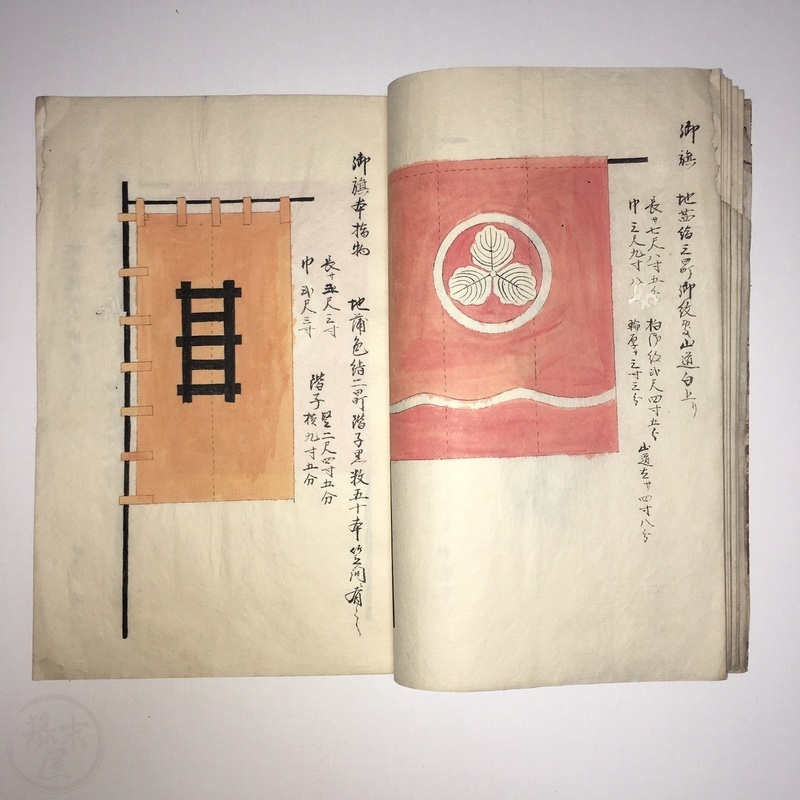 御旗
地 御紋 山道白上り
長サ七尺八寸五分
巾三尺九寸
柏御紋弐尺四寸五分
輪厚サ三寸三分
山道 サ四寸八分
御旗本指物
地蒲色絹二 階子黒数五十本笠間 有之
長サ五尺三寸
巾弐尺三寸
階子 竪二尺四寸五分
横九寸五分
幕末屋